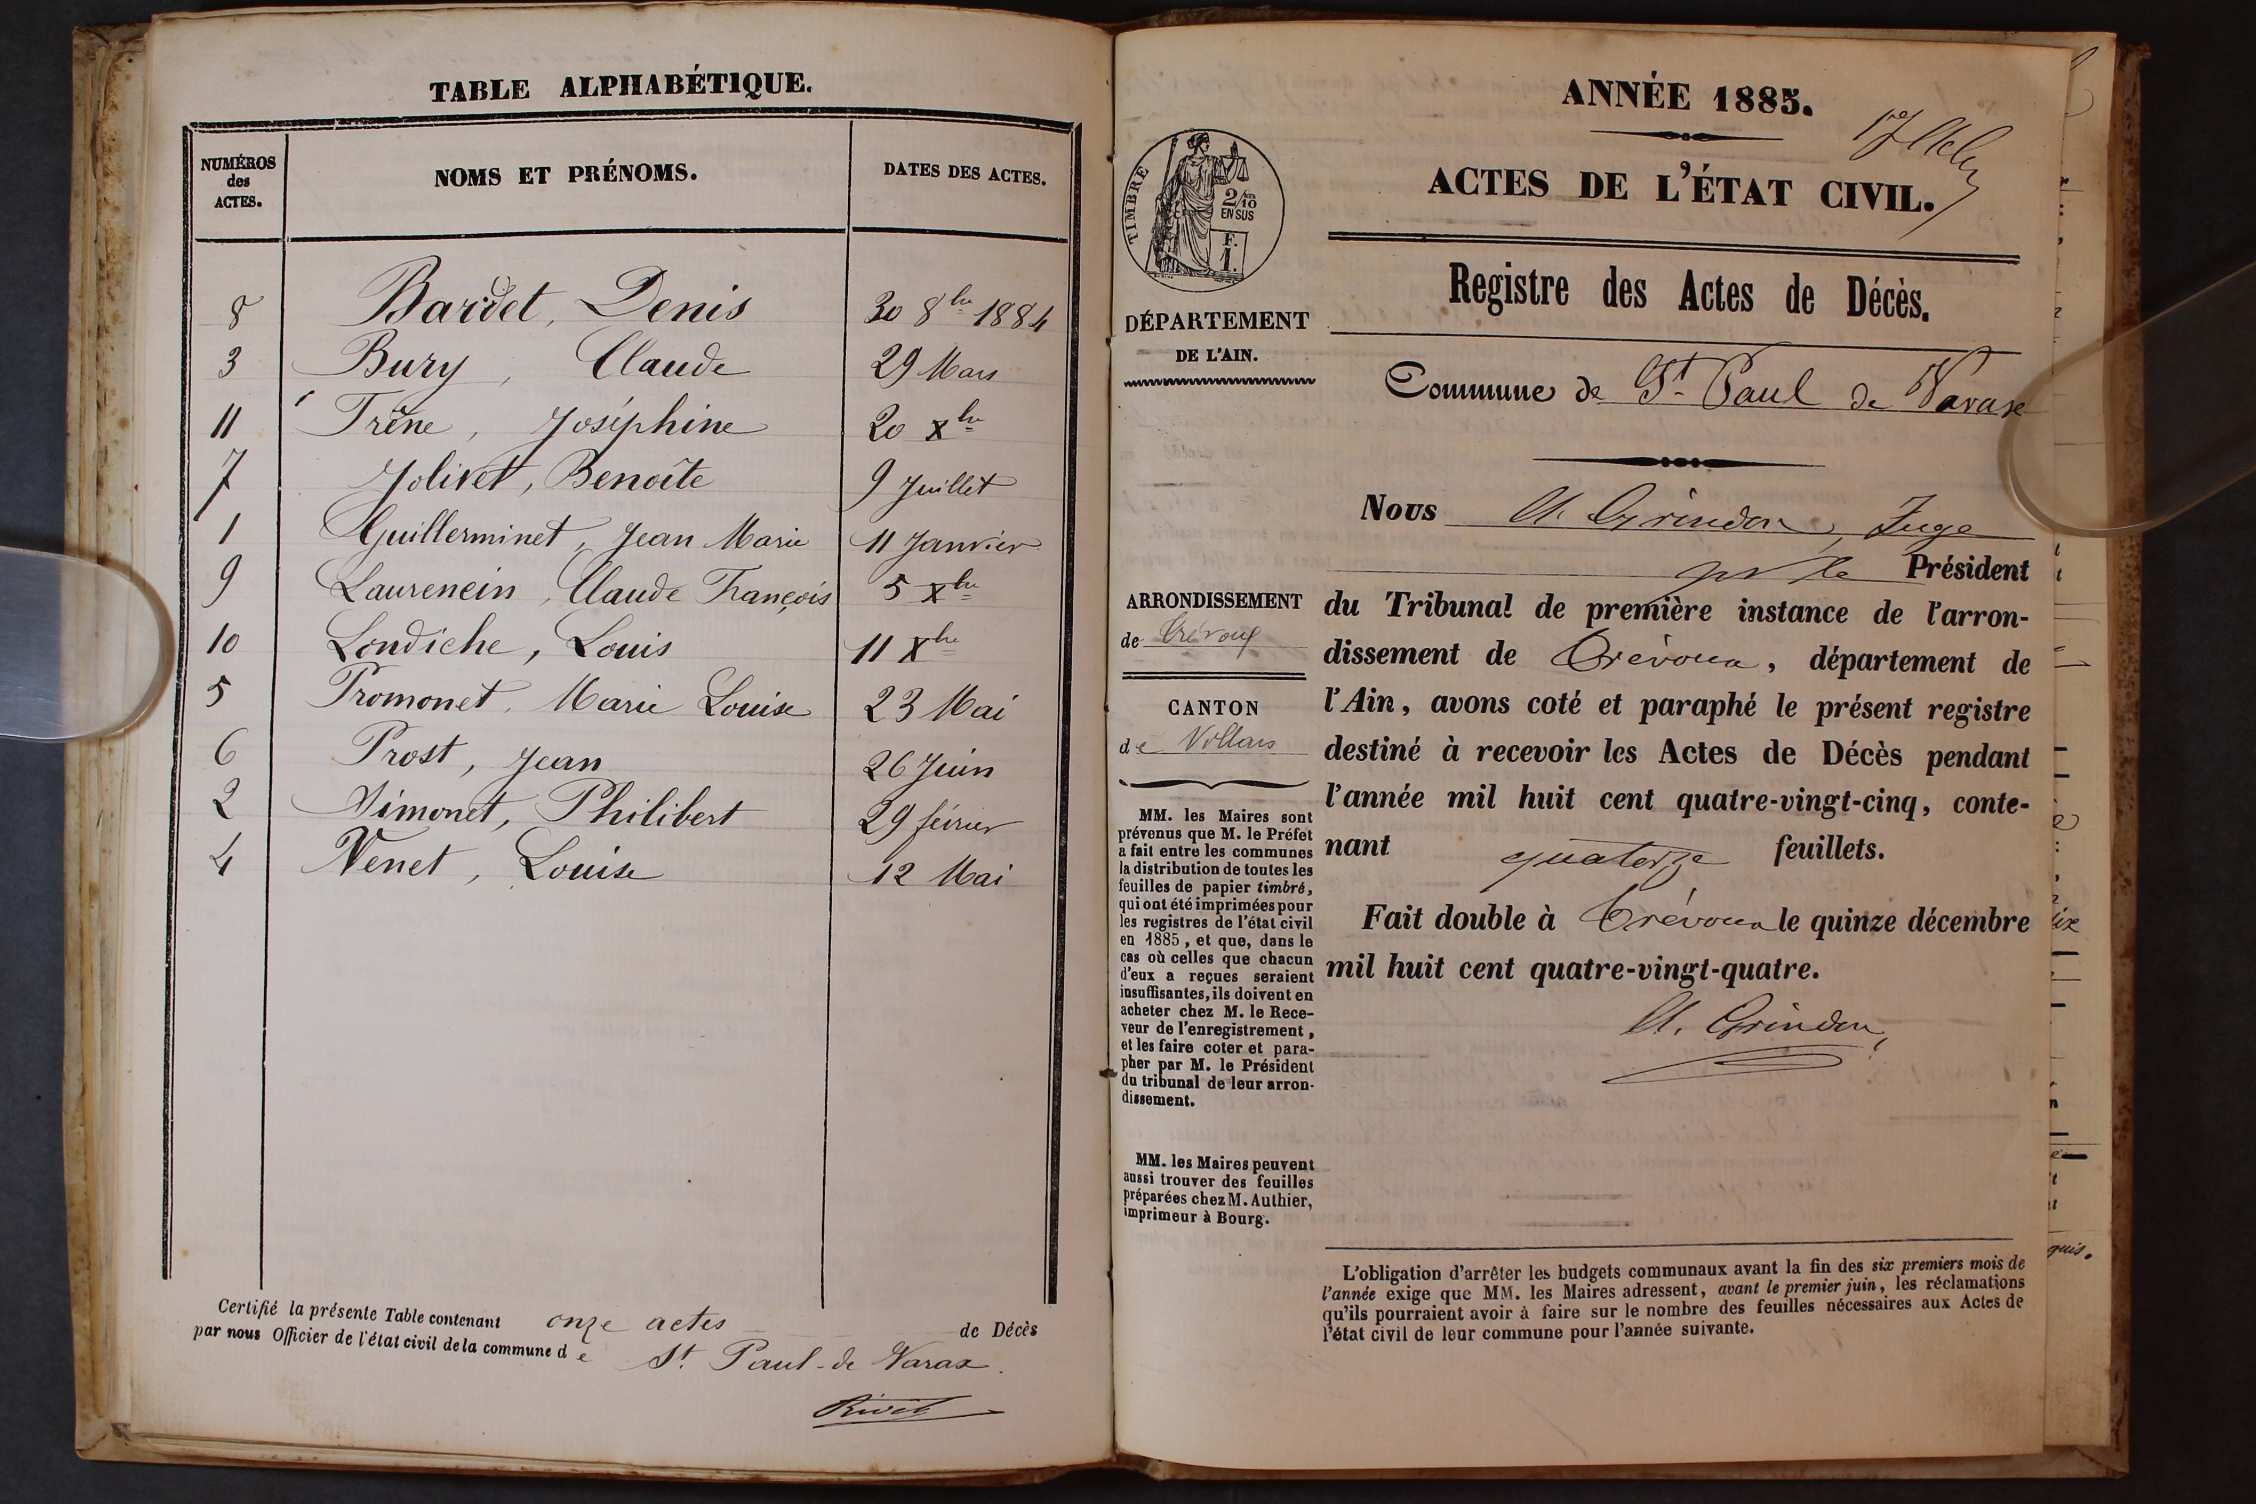 TABLE ALPHABÉTIQUE.
NUMÉROS des ACTES.
NOMS ET PRÉNOMS.
DATES DES ACTES.
8 Bardet, Denis 30 8bre 1884
3 Bury, Claude 29 Mars
11 Trêne, Joséphine 20 Xbre
7 Jolivet, Benoîte 9 Juillet
1 Guillerminet, Jean Marie 11 Janvier
9 Laurencin, Claude François 5 Xbre
10 Londiche, Louis 11 Xbre
5 Promonet, Marie Louise 23 Mai
6 Prost, Jean 26 Juin
2 Simonet, Philibert 29 février
4 Venet, Louise 12 Mai
Certifié la présente Table contenant onze actes de Décès
par nous Officier de l'état civil de la commune de St Paul-de Varax.
Rivet
ANNÉE 1885.
ACTES DE L'ÉTAT CIVIL.
TIMBRE
2/10
EN SUS
F.
1.
DÉPARTEMENT
DE L'AIN.
ARRONDISSEMENT
de Trévoux
CANTON
de Villars
MM. les Maires sont
prévenus que M. le Préfet
a fait entre les communes
la distribution de toutes les
feuilles de papier timbré,
qui ont été imprimées pour
les registres de l'état civil
en 1885, et que, dans le
cas où celles que chacun
d'eux a reçues seraient
insuffisantes, ils doivent en
acheter chez M. le Rece-
veur de l'enregistrement,
et les faire coter et para-
pher par M. le Président
du tribunal de leur arron-
dissement.
MM. les Maires peuvent
aussi trouver des feuilles
préparées chez M. Authier,
imprimeur à Bourg.
Registre des Actes de Décès.
Commune de St Paul de Varax
Nous A. Grindon, Juge
pr le Président
du Tribunal de première instance de l'arron-
dissement de Trévoux, département de
l'Ain, avons coté et paraphé le présent registre
destiné à recevoir les Actes de Décès pendant
l'année mil huit cent quatre-vingt-cinq, conte-
nant quatorze feuillets.
Fait double à Trévoux le quinze décembre
mil huit cent quatre-vingt-quatre.
A. Grindon
L'obligation d'arrêter les budgets communaux avant la fin des six premiers mois de
l'année exige que MM. les Maires adressent, avant le premier juin, les réclamations
qu'ils pourraient avoir à faire sur le nombre des feuilles nécessaires aux Actes de
l'état civil de leur commune pour l'année suivante.
quis.